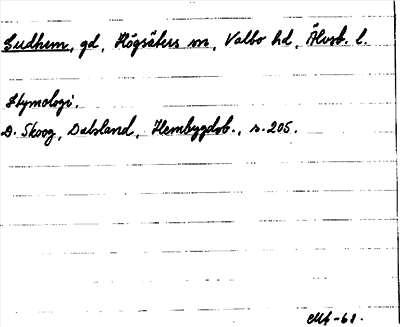 Gudhem, gd, Högsäters sn, Valbo hd, Älvsb. l.
Etymologi.
D. Skoog, Dalsland, Hembygdsb., s. 205.
-61.